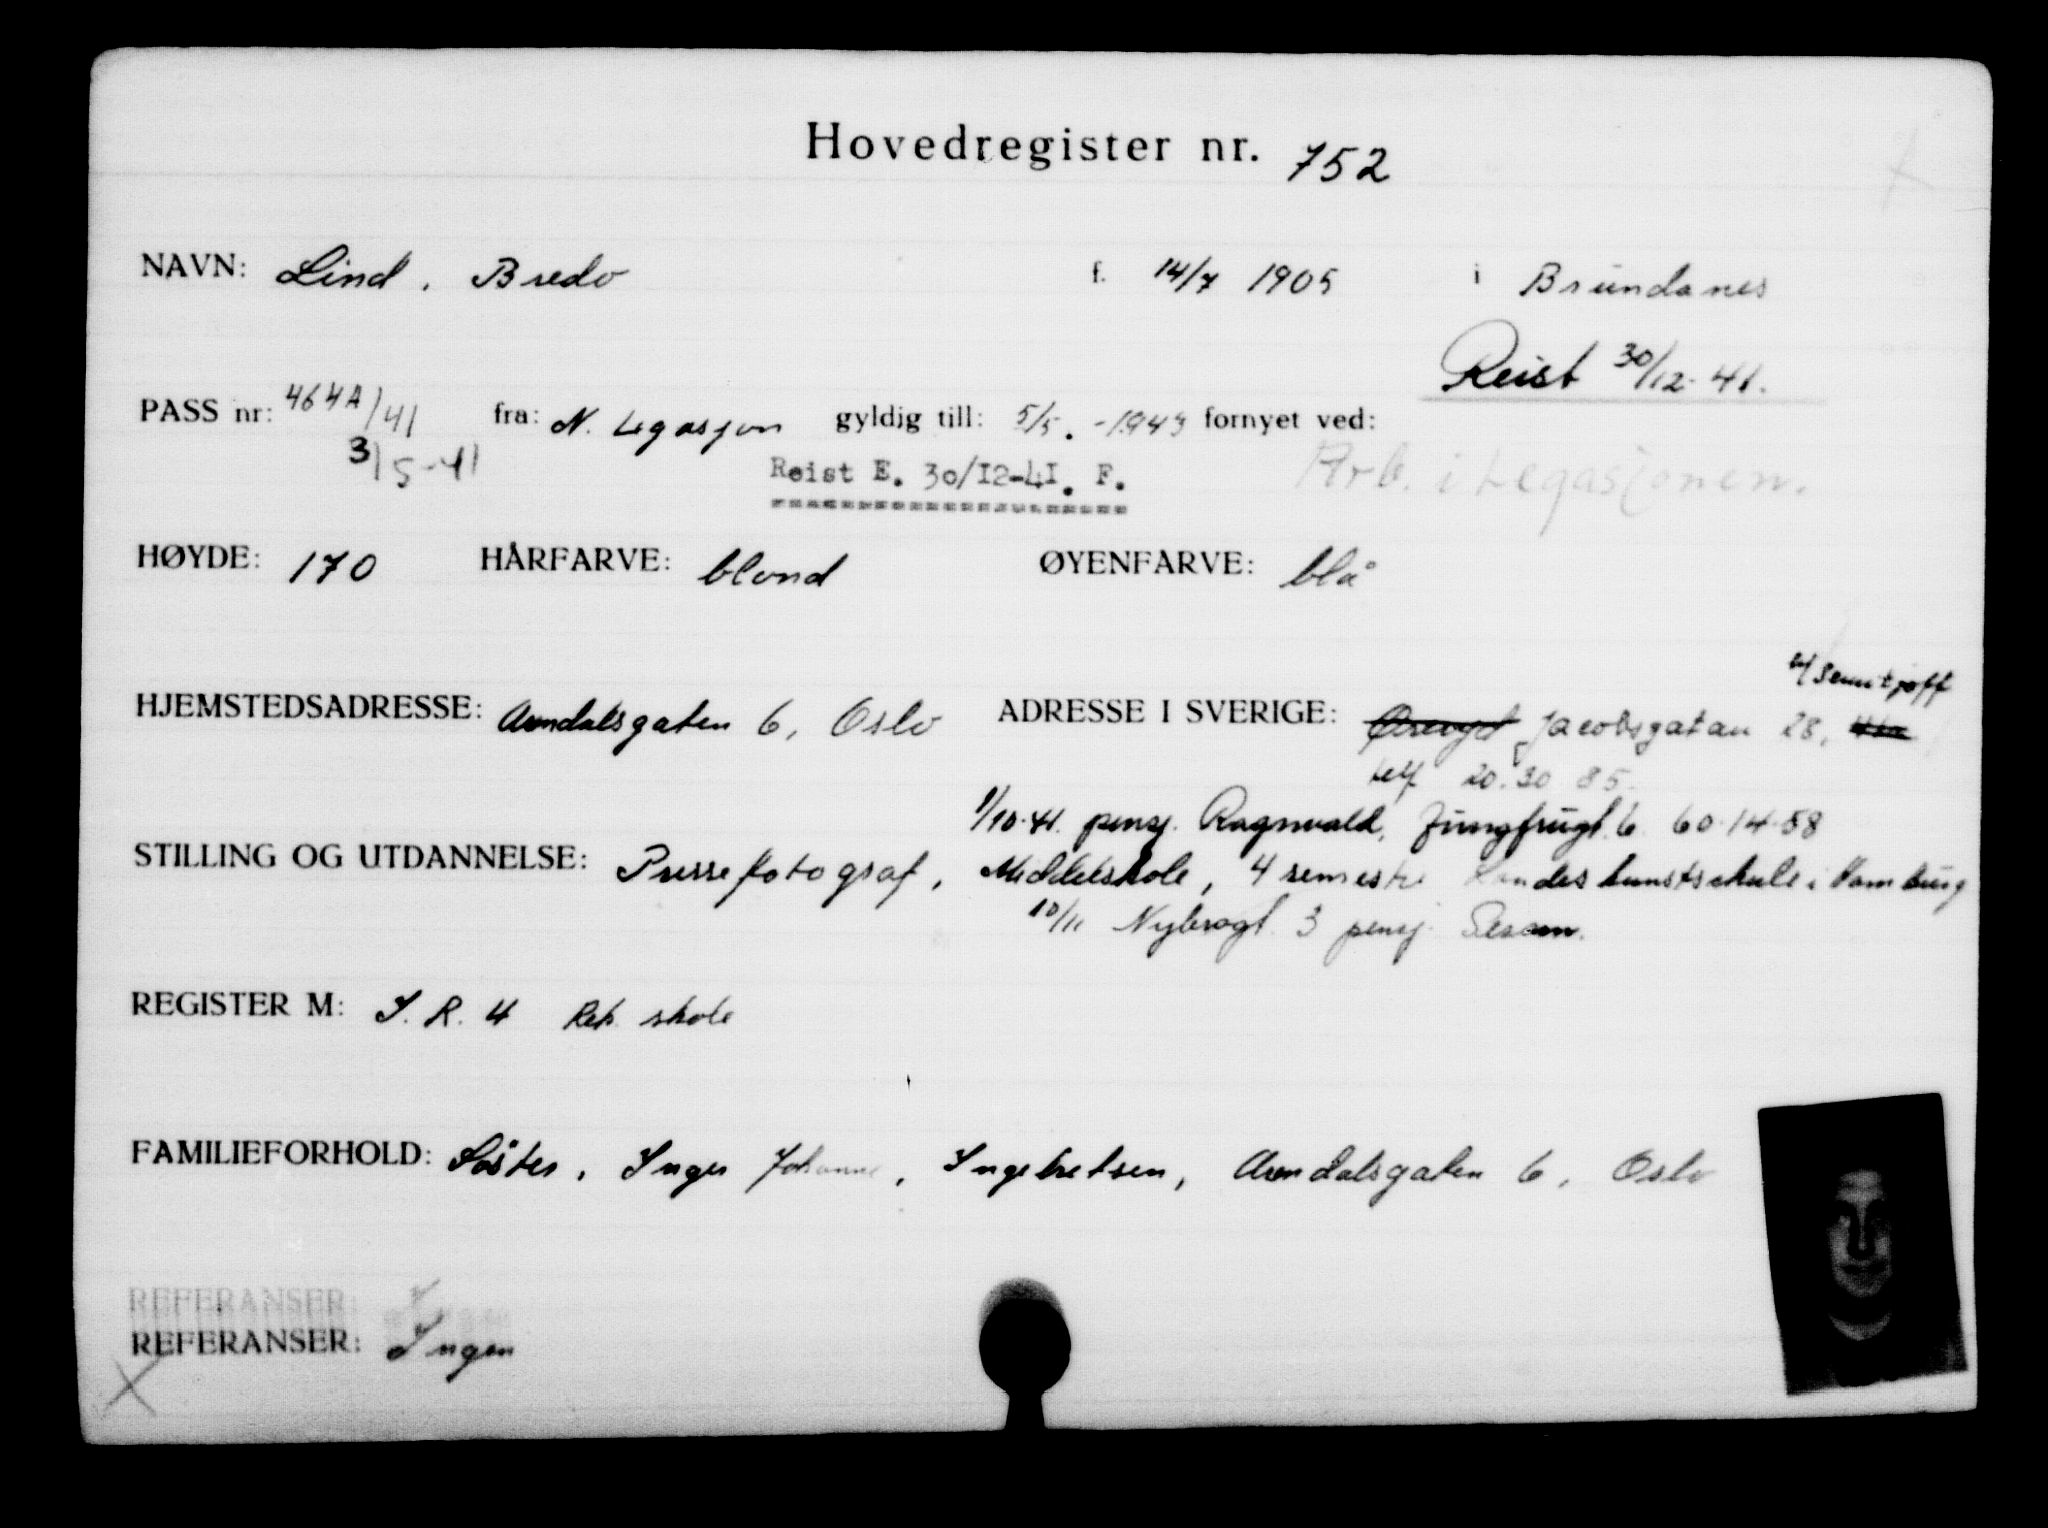 Hovedregister nr. 752
NAVN: Lind, Bredo f. 14/7 1905 i Brundanes
Reist 30/12-41.
PASS nr: 464A/41 fra: N. Legasjon gyldig till: 5/5. -1943 fornyet ved:
3/5-41
Reist E. 30/I2-4I. F. Arb. i Legasjonen.
HØYDE: 170 HÅRFARVE: blond ØYENFARVE: blå
HJEMSTEDSADRESSE: Arendalsgaten 6, Oslo ADRESSE I SVERIGE: Jacobsgatan 28,
telf 20.30 85.
1/10-41. pensj. Ragnvald, Jungfrugt. 6. 60-14-58
STILLING OG UTDANNELSE: Pressefotograf, Middelskole, 4 semestre Landeskunstschule i Hamburg
10/11 Nybrogt. 3 pensj.
REGISTER M: S. R. 4 Rek. skole
FAMILIEFORHOLD: Søster, Inger Johanne, Ingebretsen, Arendalsgaten 6, Oslo
REFERANSER:
REFERANSER: Ingen